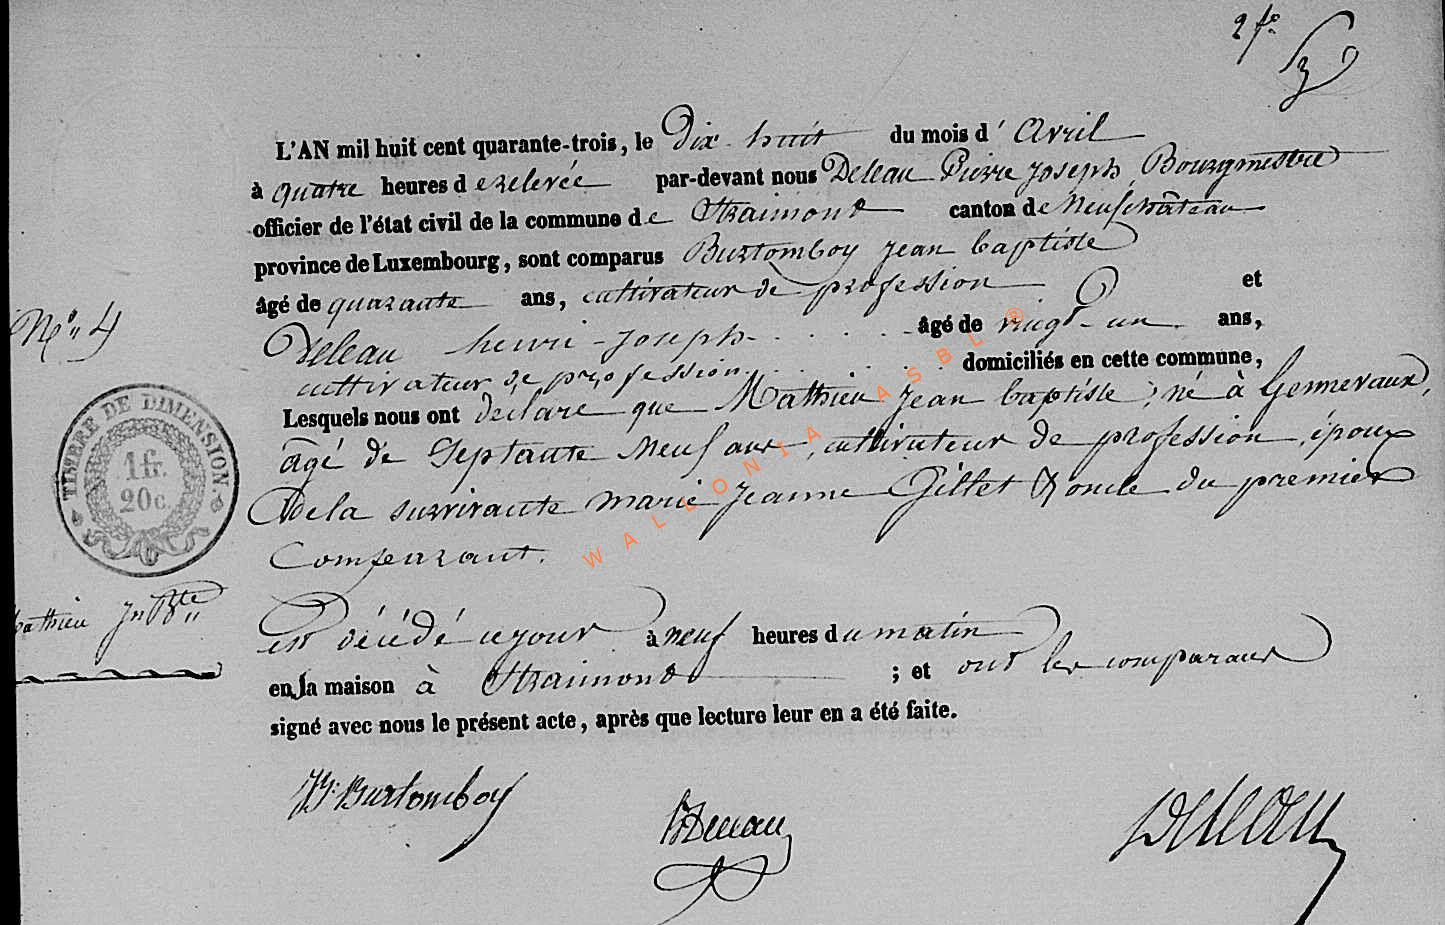 2 fo
L'AN mil huit cent quarante-trois, le Dix-huit du mois d'Avril
à quatre heures de relevée par-devant nous Deleau Pierre Joseph, Bourgmestre
officier de l'état civil de la commune de Straimont canton de Neufchâteau
province de Luxembourg, sont comparus Burtomboy Jean baptiste
âgé de quarante ans, cultivateur de profession et
Deleau henri-Joseph âgé de vingt-un ans,
cultivateur de profession domiciliés en cette commune,
Lesquels nous ont déclaré que Mathieu Jean baptiste, né à Gennevaux,
âgé de Septante Neuf ans, cultivateur de profession, époux
De la survivante marie Jeanne Gillet & oncle du premier
Comparant.
est décédé ce jour à neuf heures du matin
en sa maison à Straimont ; et ont les comparans
signé avec nous le présent acte, après que lecture leur en a été faite.
N° 4
TIMBRE DE DIMENSION
1 fr.
20 c.
Mathieu Jn Bte
JB Burtomboy
HDeleau
Deleau
WALLONIA ASBL ®